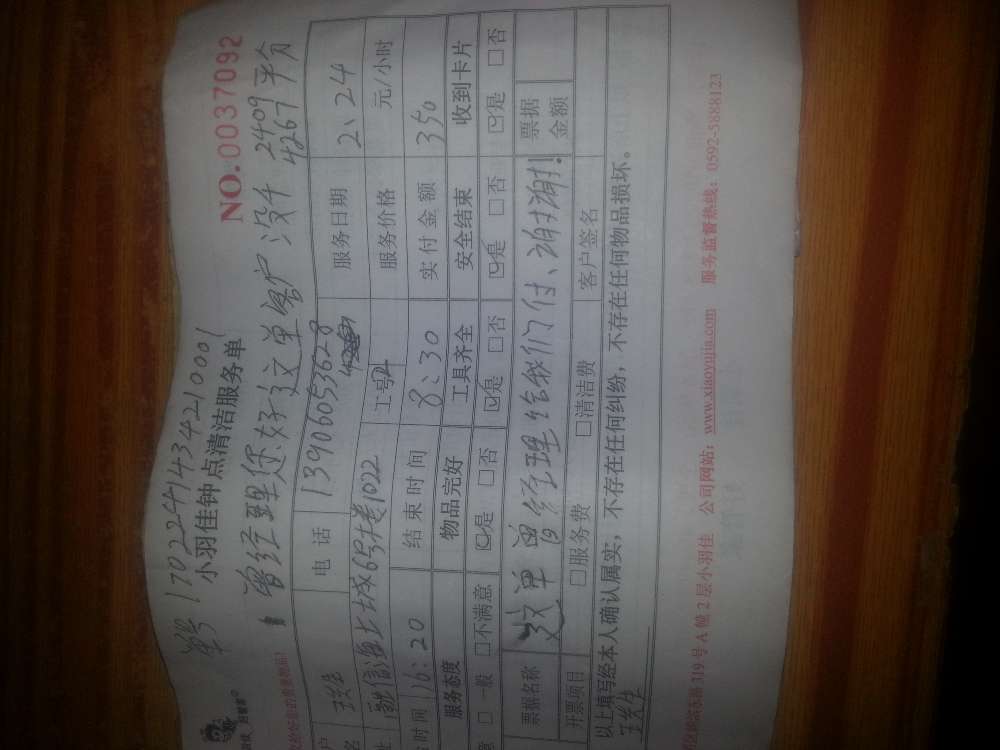 单号 170224143421​0001
小羽佳钟点清洁服务单
NO.0037092
曾经理您好这单客户没千 2409平台
4267
户 王先生 电 话 13906053628 服务日期 2、24
海上城6号楼1022 工号 服务价格 元/小时
时间 16:20 结束时间 8:30 实付金额 350
服务态度 物品完好 工具齐全 安全结束 收到卡片
意 □一般 □不满意 ☑是 □否 ☑是 □否 ☑是 □否 ☑是 □否
票据名称 这单曾经理给我们付、谢谢! 票据金额
开票项目 □服务费 □清洁费 客户签名
以上填写经本人确认属实，不存在任何纠纷，不存在任何物品损坏。
王先生
319号A幢2层小羽佳 公司网站：www.xiaoyujia.com 服务监督热线：0592-5888123